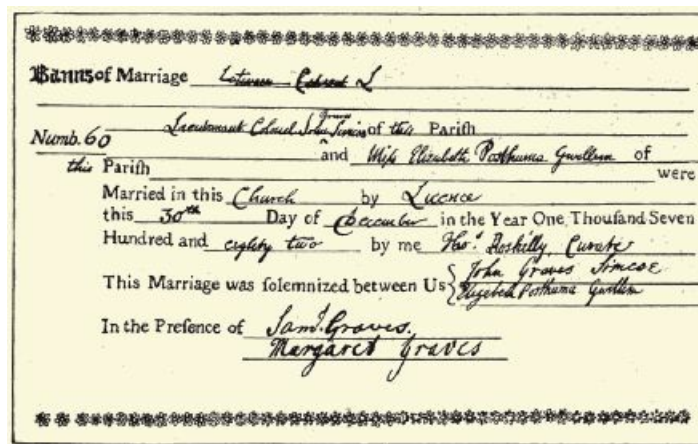 Banns of Marriage between Colonel L
Graves
Lieutenant Colonel John Simcoe of this Parish
Numb. 60
and Miss Elizabeth Posthuma Gwillim of
this Parish were
Married in this Church by Licence
this 30th Day of December in the Year One Thousand Seven
Hundred and eighty two by me Thos. Roskilly, Curate
This Marriage was solemnized between Us { John Graves Simcoe
Elizabeth Posthuma Gwillim
In the Presence of Saml. Graves.
Margaret Graves